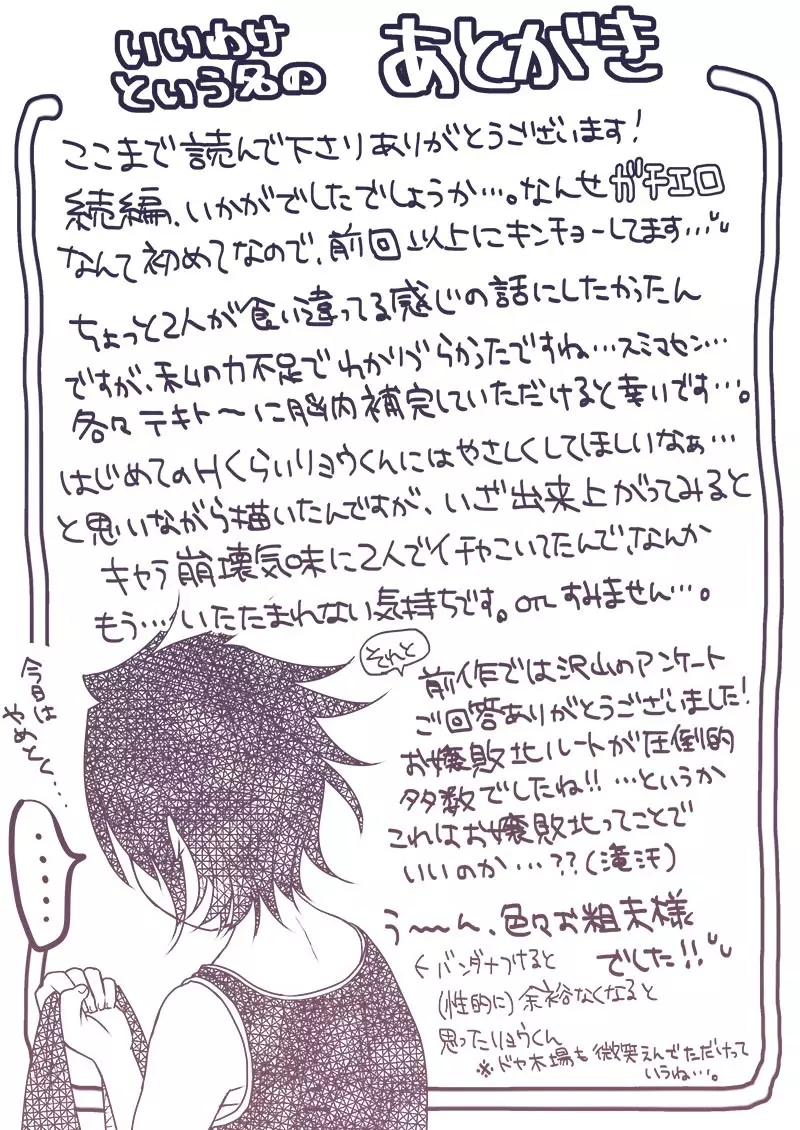 いいわけ
という名の
あとがき
ここまで読んで下さりありがとうございます!
続編、いかがでしたでしょうか…。なんせガチエロ
なんて初めてなので、前回以上にキンチョーしてます…
ちょっと2人が食い違ってる感じの話にしたかったん
ですが、私の力不足でわかりづらかったですね…スミマセン…
各々テキト〜に脳内補完していただけると幸いです…。
はじめてのHくらいリョウくんにはやさしくしてほしいなぁ…
と思いながら描いたんですが、いざ出来上がってみると
キャラ崩壊気味に2人でイチャこいてたんで、なんか
もう…いたたまれない気持ちです。orzすみません…。
それと
前作では沢山のアンケート
ご回答ありがとうございました!
お嬢敗北ルートが圧倒的
多数でしたね!!…というか
これはお嬢敗北ってことで
いいのか…??(滝汗)
う〜ん、色々お粗末様
でした!!
今日は
やめとく…
……
←バンダナつけると
(性的に)余裕なくなると
思ったリョウくん
※ドヤ木場も微笑えんでただけって
いうね…。